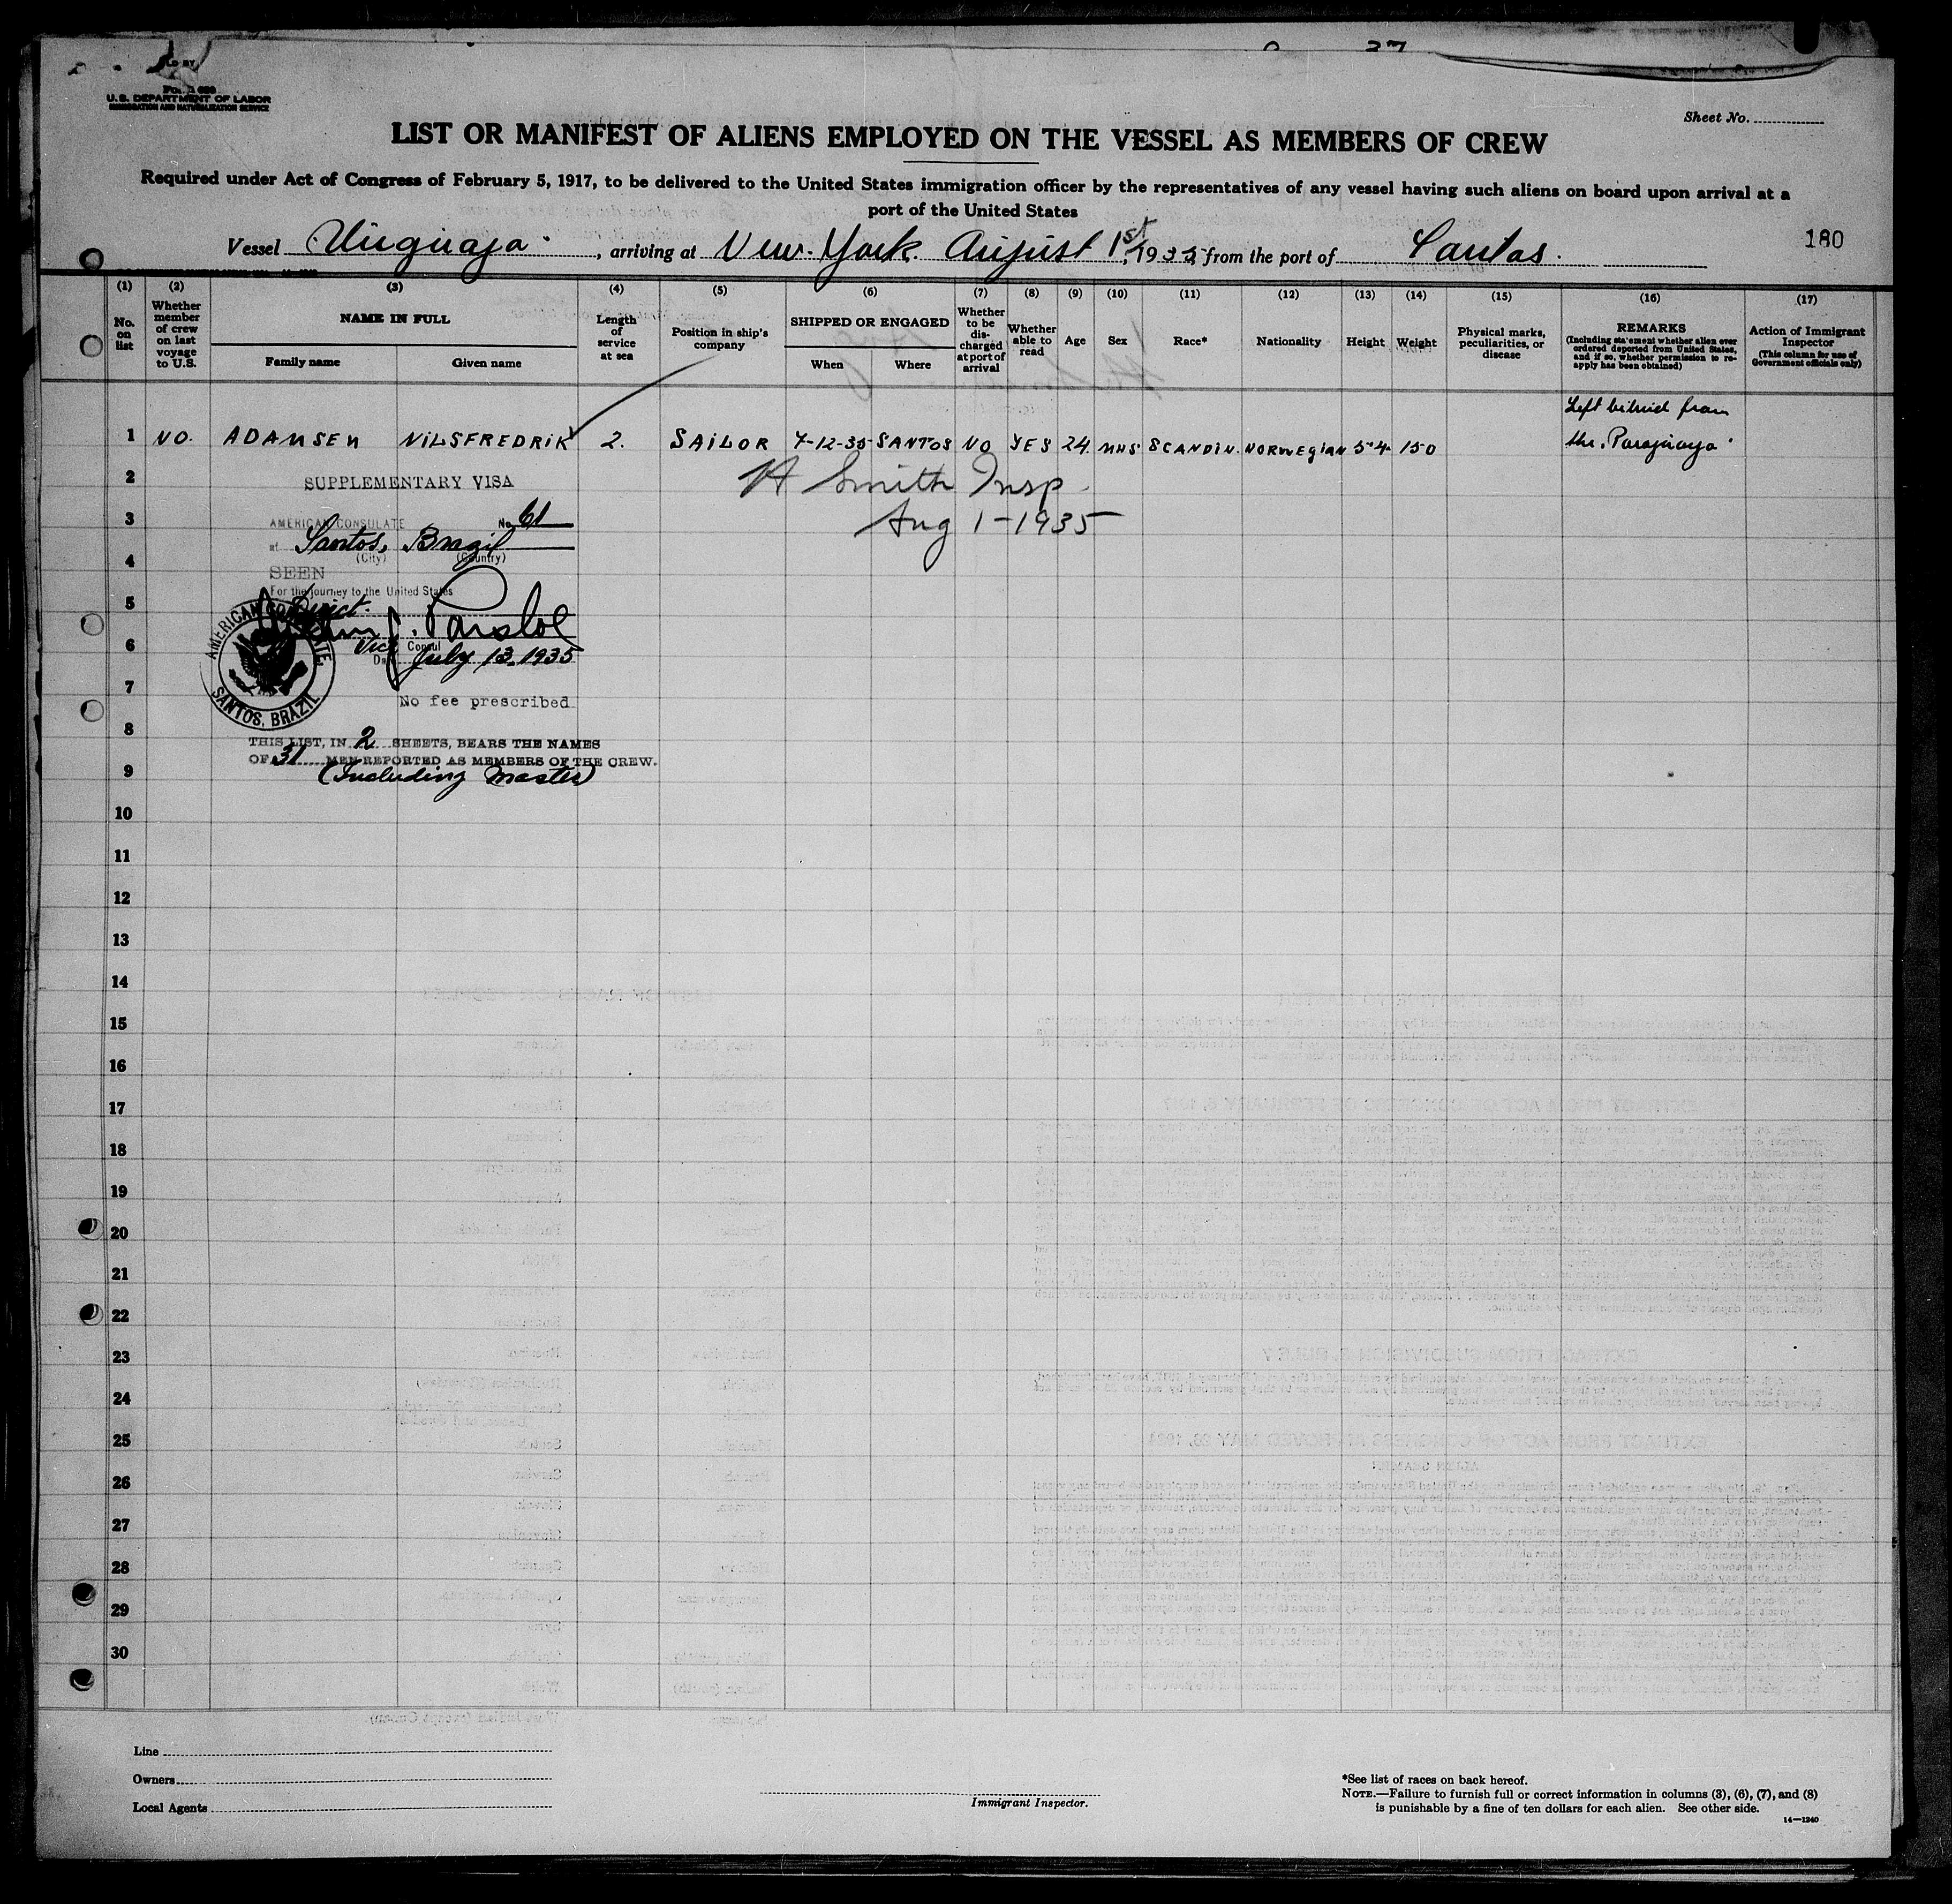 U.S. DEPARTMENT OF LABOR
IMMIGRATION AND NATURALIZATION SERVICE
Sheet No.
LIST OR MANIFEST OF ALIENS EMPLOYED ON THE VESSEL AS MEMBERS OF CREW
Required under Act of Congress of February 5, 1917, to be delivered to the United States immigration officer by the representatives of any vessel having such aliens on board upon arrival at a
port of the United States
Vessel , arriving at New-York. August 1st, 1935, from the port of Santos.
180
(1) (2) (3) (4) (5) (6) (7) (8) (9) (10) (11) (12) (13) (14) (15) (16) (17)
No. on list
Whether member of crew on last voyage to U.S.
NAME IN FULL
Family name
Given name
Length of service at sea
Position in ship's company
SHIPPED OR ENGAGED
When
Where
Whether to be discharged at port of arrival
Whether able to read
Age
Sex
Race*
Nationality
Height
Weight
Physical marks, peculiarities, or disease
REMARKS
(Including statement whether alien ever ordered deported from United States, and if so, whether permission to re-apply has been obtained)
Action of Immigrant Inspector
(This column for use of Government officials only)
Left behind from
1 NO. ADAMSEN NILSFREDRIK 2. SAILOR 7-12-35 SANTOS NO YES 24 SCANDIN. NORWEGIAN 5-4 150 the "Paraguayo"
2
SUPPLEMENTARY VISA
H Smith Insp.
3
AMERICAN CONSULATE No. 61
Aug 1-1935
at Santos, Brazil
(City) (Country)
4
SEEN
For the journey to the United States
5
Direct.
J. Parsloe
6
Vice Consul
Date July 13, 1935
AMERICAN CONSULATE,
SANTOS, BRAZIL
7
No fee prescribed.
8
THIS LIST, IN 2 SHEETS, BEARS THE NAMES
OF 31 MEN REPORTED AS MEMBERS OF THE CREW.
9
(Including Master)
10
11
12
13
14
15
16
17
18
19
20
21
22
23
24
25
26
27
28
29
30
Line
Owners
Local Agents
Immigrant Inspector.
*See list of races on back hereof.
NOTE.—Failure to furnish full or correct information in columns (3), (6), (7), and (8)
is punishable by a fine of ten dollars for each alien. See other side.
14—1240